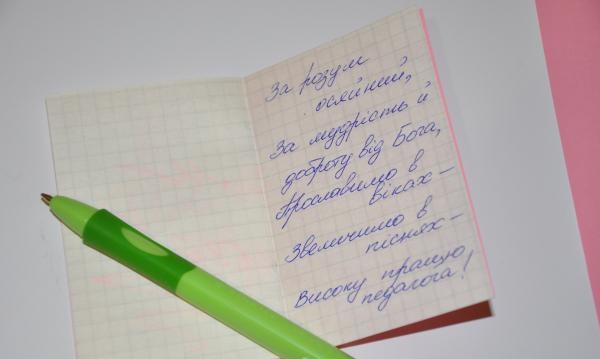 За розум
осяйний,
За мудрість й
доброту від Бога,
Прославимо в
віках —
Звеличимо в
піснях —
Високу працю
педагога!